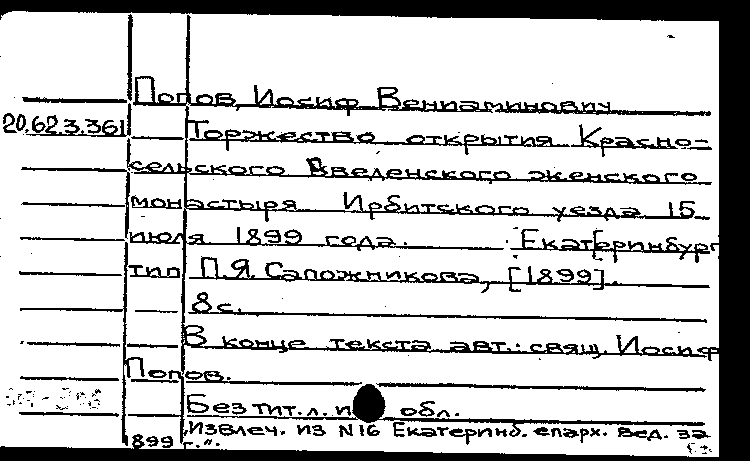 Попов, Иосиф Вениаминович
20.62.3.361 Торжество открытия Красно-
сельского Введенского женского
монастыря Ирбитского уезда 15
июля 1899 года. Екатеринбург
тип П.Я. Сапожникова, [1899].
8с.
В конце текста авт.: свящ. Иосиф
Попов.
Без тит.л. и обл.
„Извлеч. из N16 Екатеринб. епарх. вед. за
1899 г.".